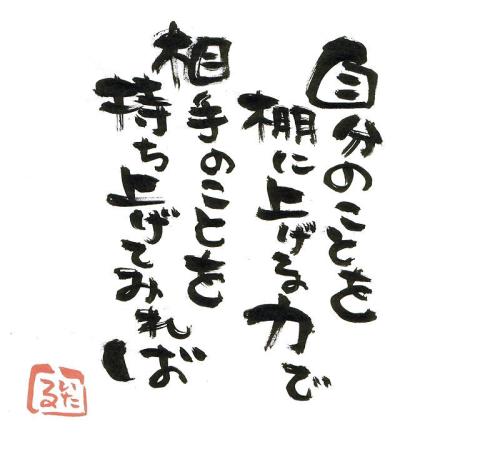 自分のことを
棚に上げる力で
相手のことを
持ち上げてみれば
いたる